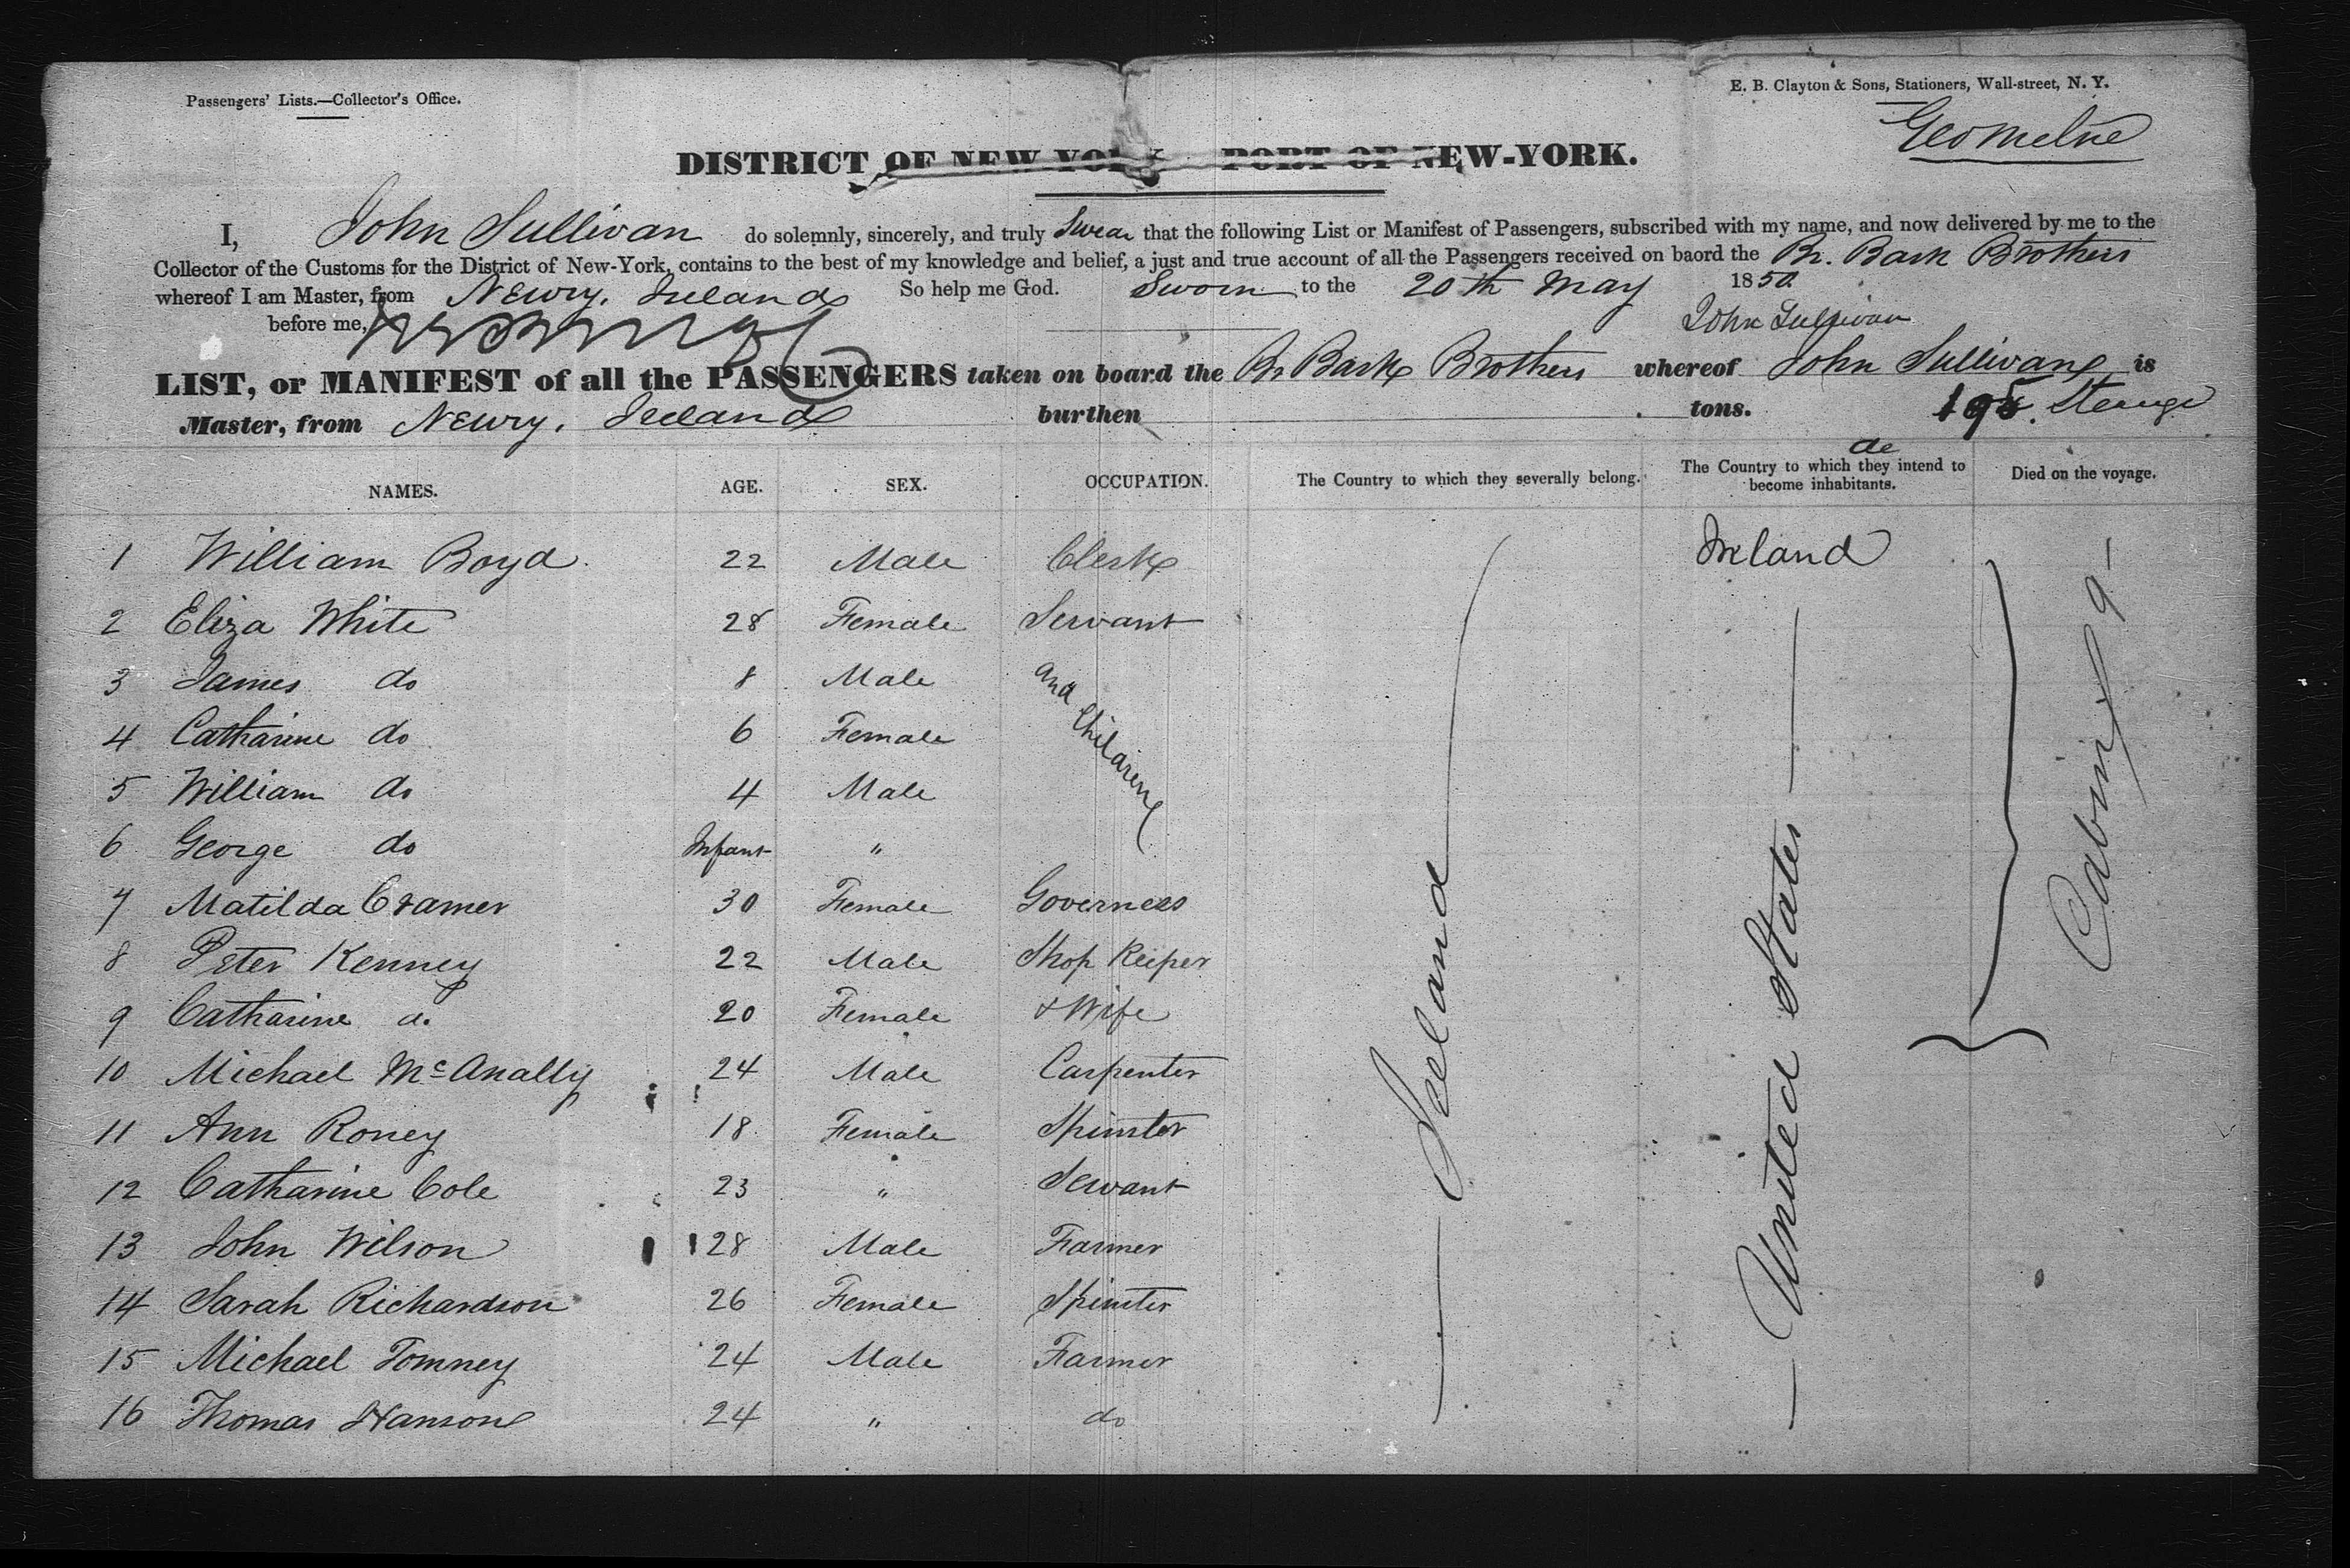 Passengers' Lists.—Collector's Office.
E. B. Clayton & Sons, Stationers, Wall-street, N. Y.
DISTRICT OF NEW YORK PORT OF NEW-YORK.
I, John Sullivan do solemnly, sincerely, and truly Swear that the following List or Manifest of Passengers, subscribed with my name, and now delivered by me to the
Collector of the Customs for the District of New-York, contains to the best of my knowledge and belief, a just and true account of all the Passengers received on baord the Br. Bark Brothers
whereof I am Master, from Newry, Ireland So help me God. Sworn to the 20th May 1850
before me, John Sullivan
LIST, or MANIFEST of all the PASSENGERS taken on board the Br Bark Brothers whereof John Sullivan is
Master, from Newry, Ireland burthen tons. 195
NAMES. AGE. SEX. OCCUPATION. The Country to which they severally belong. The Country to which they intend to become inhabitants. Died on the voyage.
1 William Boyd 22 Male Clerk Ireland
2 Eliza White 28 Female Servant
3 James do 8 Male and Children
4 Catharine do 6 Female
5 William do 4 Male
6 George do Infant "
7 Matilda Cramer 30 Female Governess
8 Peter Kenney 22 Male Shop Keeper
9 Catharine do 20 Female & Wife
10 Michael McAnally 24 Male Carpenter
11 Ann Roney 18 Female Spinster
12 Catharine Cole 23 " Servant
13 John Wilson 28 Male Farmer
14 Sarah Richardson 26 Female Spinster
15 Michael Tomney 24 Male Farmer
16 Thomas Hanson 24 " do
Ireland
United States
Cabin 9